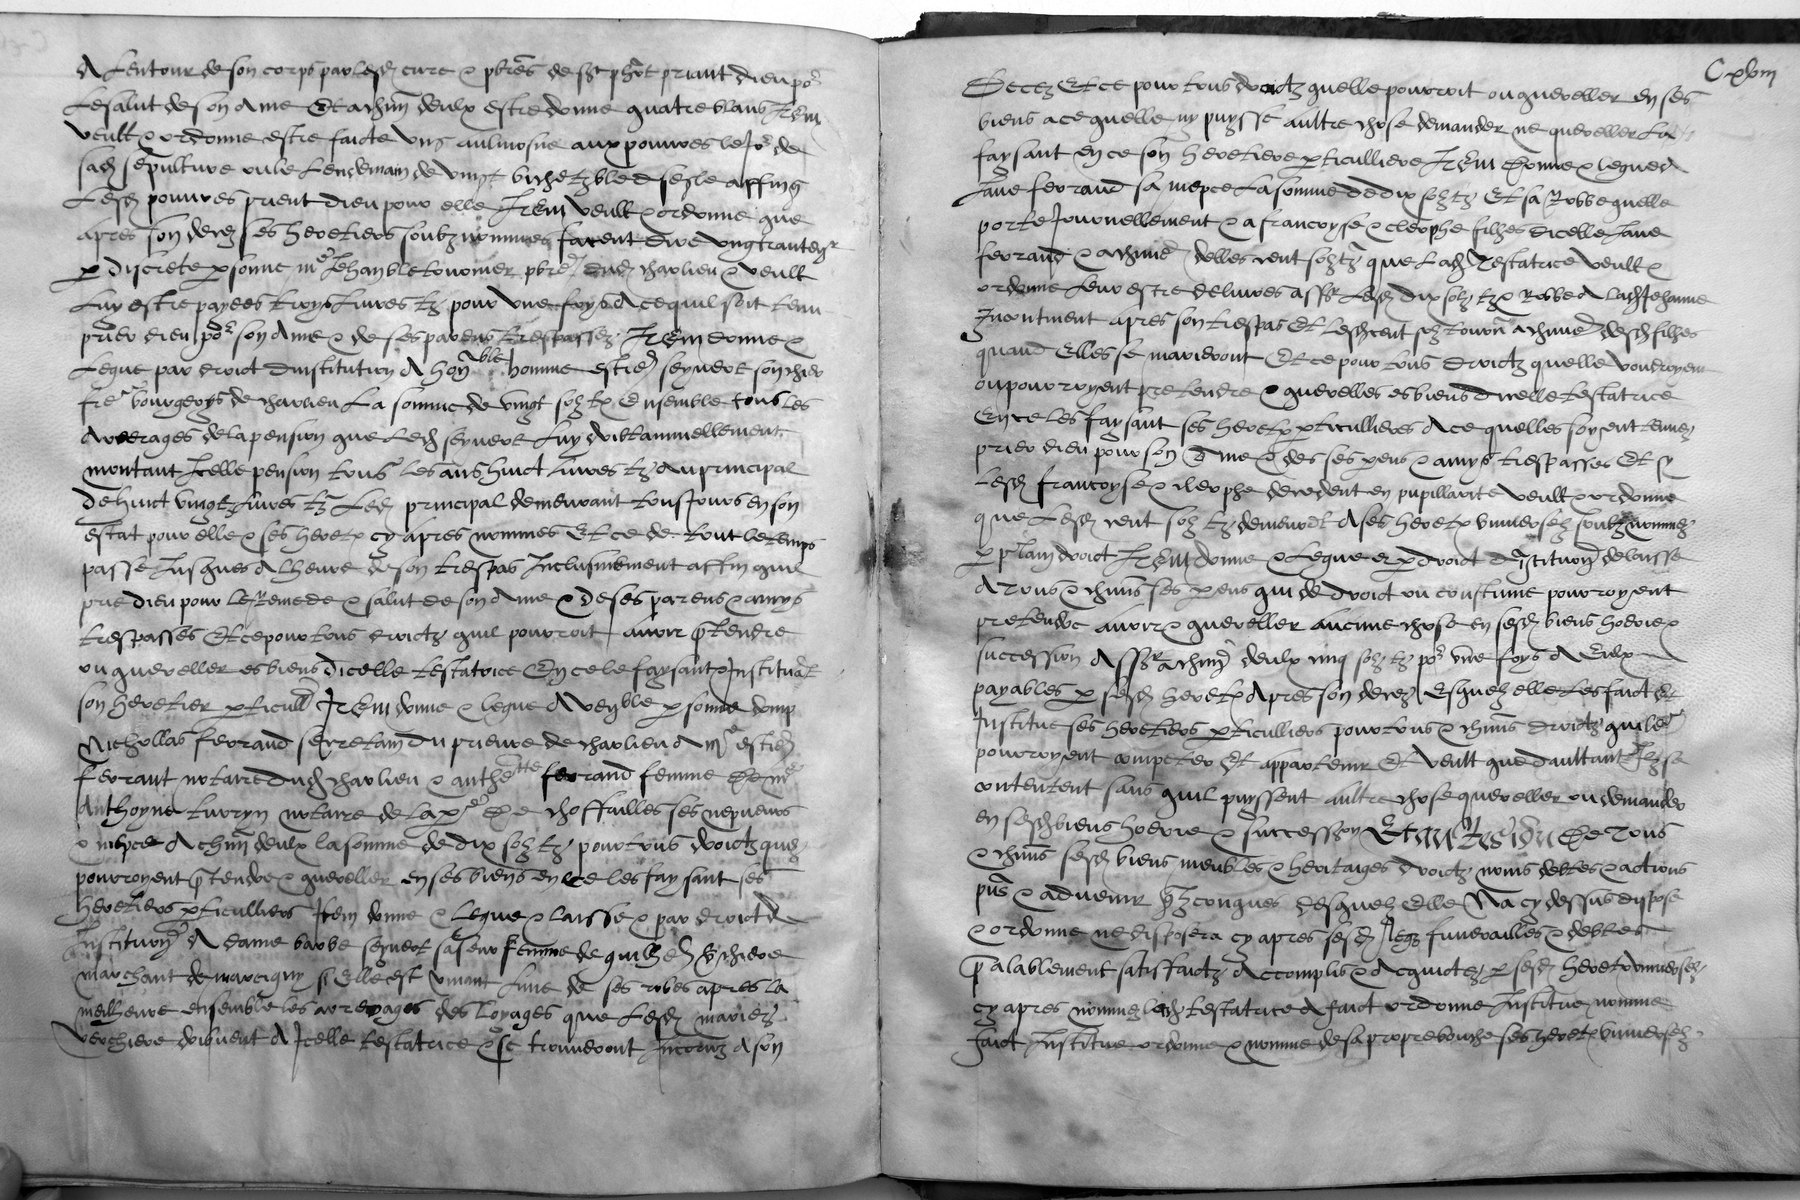 A lentour de son corps par lesd cure & pbres de st phot priant dieu po
le salut de son ame Et a chun deulx estre donne quatre blans Item
veult & ordonne estre faicte une aulmosne aux pouvres le jo de
sad sepulture ou le lendemain de vingt bichetz bled seigle affing
lesd pouvres prient dieu pour elle Item veult & ordonne que
apres son decez ses heretiers soubz nommes facent dire ung trantegr
p discrete psonne me Jehan pbre dud charlieu & veult
luy estre payees troys livres tz pour une foys A ce quil soit tenu
prier dieu por son ame & de ses parens trespassez Item donne &
legue par droict dinstitution A honble homme estied seyvert son
frere bourgeoys de charlieu la somme de vingt solz tz Ensemble tous les
arrerages de la pension que led seyvert luy doibt annuellement
montant Icelle pension tous les ans huict livres tz du principal
de huict vingtz livres tz led principal demeurant tousjours en son
estat pour elle & ses heretz cy apres nommes Et ce de tout le temps
passe Jusques A lheure de son trespas Inclusivement affin quil
prie dieu pour le remede & salut de son ame & de ses parens & amys
trespasses Et ce pour tous droictz quil pourroit avoir ptendre
ou quereller es biens dicelle testatrice En ce le faysant & Instituat
son heretier pticull Item donne & legue A venble psonne domp
Nicholas ferrand secretain du prieure de charlieu A me estied
ferrant notaire dud charlieu & anthette ferrand femme de me
Anthoyne turryn notaire de la pse de choffailles ses nepveurs
& niepce A chun deulx la somme de dix solz tz pour tous droictz quez
pourroyent ptendre & quereller en ses biens en ce les faysant ses
heretiers pticulliers Item donne & legue & laisse & par droict de
Institution A dame barbe seyvert sa seur femme de guilhed verchiere
marchant de marcigny sy Elle est vivant lune de ses robes apres la
meilheure ensemble les arrerages des loyages que lesd mariez
verchiere doibvent A Icelle testatrice & se trouveront Incoruz A son
Cxlviii
Decez Et ce pour tous droictz quelle pourroit ou quereller en ses
biens a ce quelle ny puysse aultre chose demander ne quereller la
faysant en ce son heretiere pticulliere Item donne & legue A
Jane ferrand sa niepce la somme de dix solz tz Et sa robbe quelle
porte journellement & a francoyse & cleophe filhes dicelle Jane
ferrand & a chune delles cent solz tz que lad testatrice veult &
ordonne leur estre delivres assr lesd dix solz tz & robbe A lad Jehanne
Incontinent apres son trespas Et lesd cent solz tourn a chune desd filhes
quand Elles se marieront Et ce pour tous droictz quelle vouldroyent
ou pourroyent pretendre & quereller es biens dicelle testatrice
En ce les faysant ses heretz pticullieres A ce quelles soyent tenuez
prier dieu pour son Ame & des ses pens & amys trespasses Et sy
lesd francoyse & cleophe decedent en pupillarite veult & ordonne
que lesd cent solz tz demeurent A ses heretz universelz soubz nommez
p plain droict Item donne & legue & p droict dInstitution delaisse
A tous & chuns ses pens qui de droict ou coustume pourroyent
pretendre avoir & quereller aucune chose en sesd biens hoerie &
succession A chun deulx cinq solz tz por une foys A Eulx
payables p sesd heretz Apres son decez Esquelz elle les faict Et
Institue ses heretiers pticulliers pour tous & chuns droictz quilz
pourroyent competer Et appartenir Et veult que daultant Ilz se
contentent sans quil puyssent aultre chose quereller ou demander
en sesd biens hoerie & succession Et au Residu De Tous
& chuns sesd biens meubles & heritaiges droictz noms debtes & actions
pns & advenir qlzconques desquelz Elle Na cy dessus dispose
& ordonne ne disposera cy apres sesd legz funerailles & debtes
pralablement satisfaictz Accomplis & Acquictez p sesd heretz universelz
cy apres nommez lad testatrice A faict ordonne Institue nomme
faict Institue ordonne & nomme de sa propre bouche ses heretz universelz